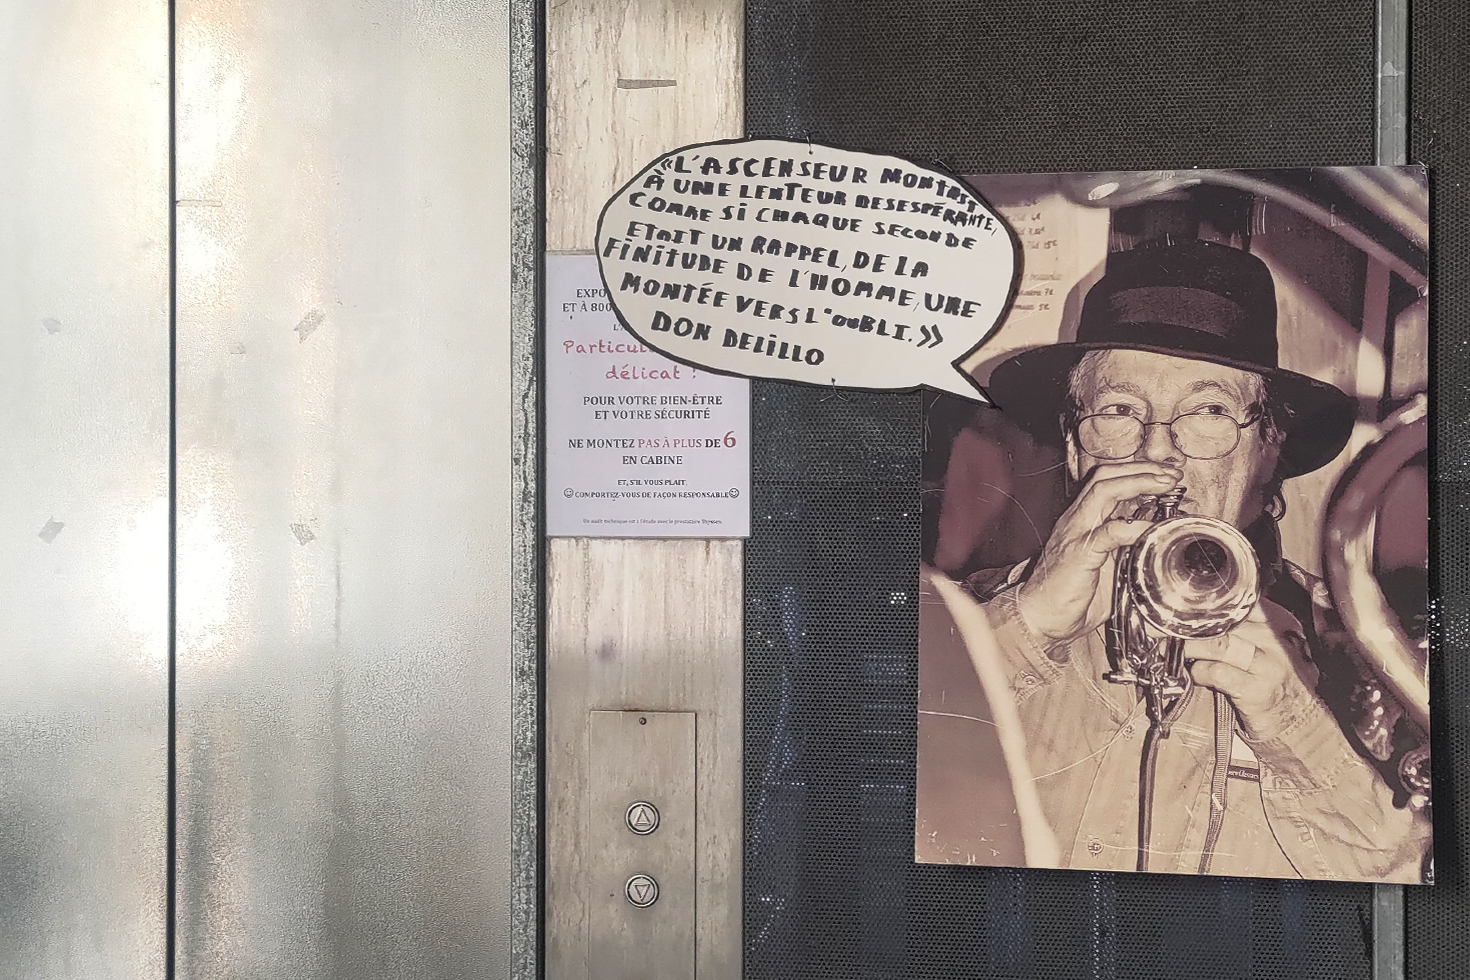 «L'ASCENSEUR MONTAIT
À UNE LENTEUR DESESPÉRANTE,
COMME SI CHAQUE SECONDE
ETAIT UN RAPPEL, DE LA
FINITUDE DE L'HOMME, UNE
MONTÉE VERS L'OUBLI.»
DON DELILLO
EXPO
ET À 800
Particul
délicat !
POUR VOTRE BIEN-ÊTRE
ET VOTRE SÉCURITÉ
NE MONTEZ PAS À PLUS DE 6
EN CABINE
ET, S'IL VOUS PLAIT,
☺COMPORTEZ-VOUS DE FAÇON RESPONSABLE☺
Un audit technique est à l'étude avec le prestataire Thyssen.